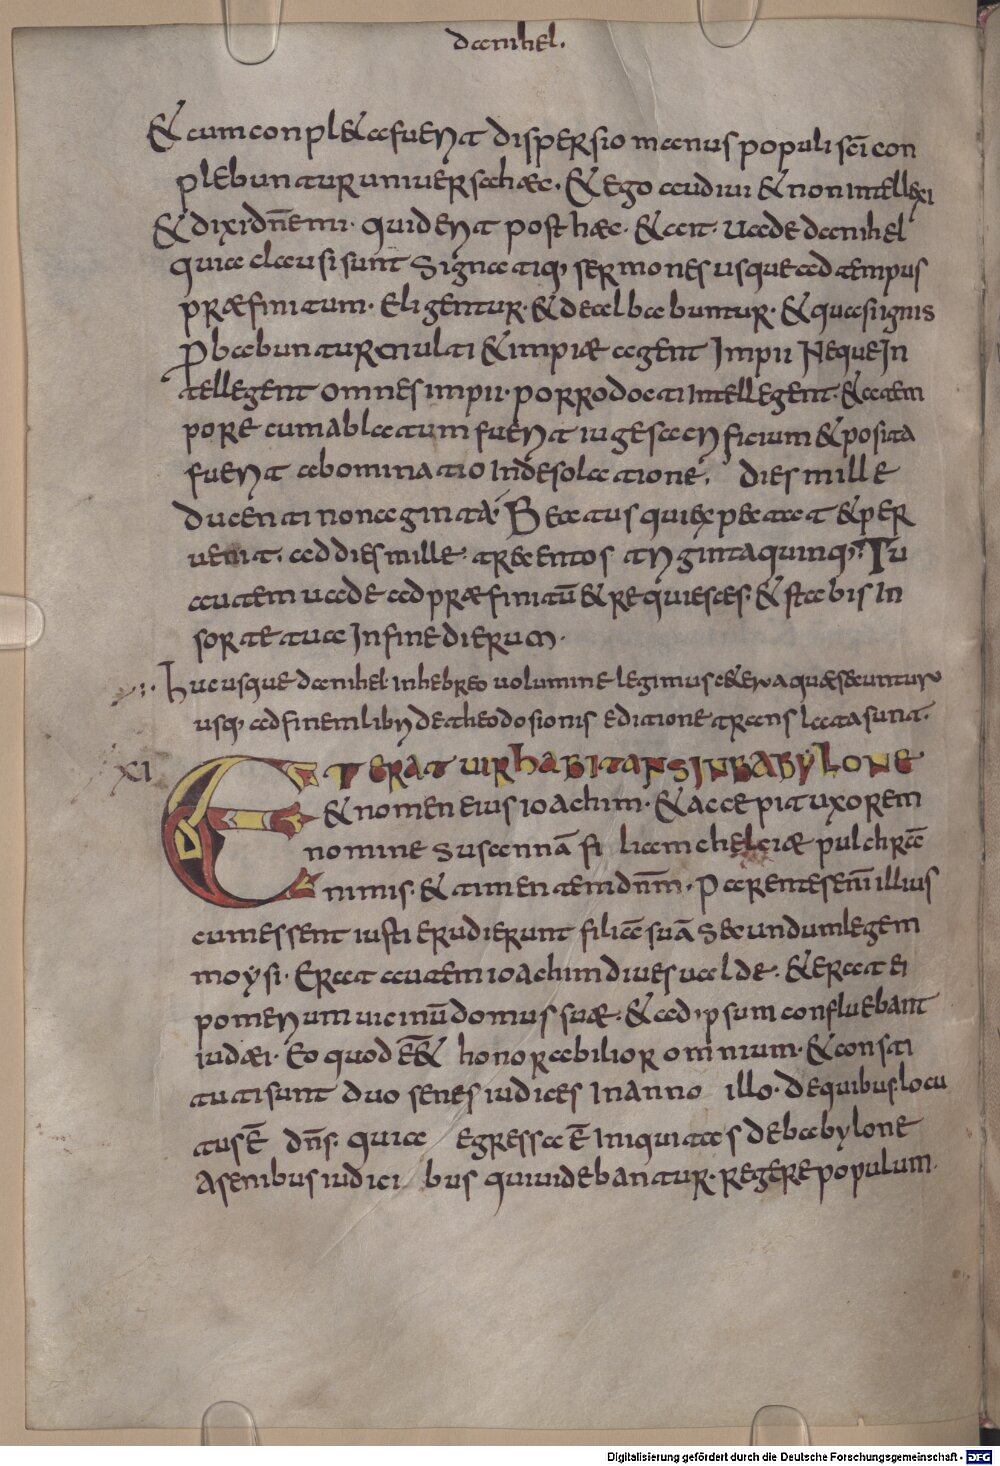 danihel.
& cum conpl&a fuerit dispersio manus populi sc̄i con
plebuntur uniuersa haec. & ego audiui & non intellexi
& dixi dn̄e mi. quid erit post haec. & ait. uade danihel
quia clausi sunt signatiq; sermones usque ad tempus
praefinitum. Eligentur. & dealbabuntur. & quasi ignis
Pbabuntur multi & impiae agent Impii Neque In
tellegent omnes impii. porro docti Intellegent. & a tem
pore cum ablatum fuerit iuge sacrificium & posita
fuerit abominatio In desolatione. dies mille
ducenti nonaginta. Beatus qui expectat & per
uenit. ad dies mille. trecentos triginta quinq;. Tu
autem uade ad praefinitū & requiesces. & stabis In
sorte tua In fine dierum.
Huc usque danihel In hebreo uolumine legimus c&era quae secuntur
usq; ad finem libri de theodosionis editione translata sunt.
XI
ET ERAT UIR HABITANS IN BABYLONE
& nomen eius ioachim. & accepit uxorem
nomine susannā filiam chelciae pulchrā
nimis. & timentem dn̄m. Parentes en̄i illius
cum essent iusti erudierunt filiā suā secundum legem
moysi. Erat autem ioachim diues ualde. & erat ei
pomerium uicinū domus suae. & ad ipsum confluebant
iudaei. Eo quod ēē& honorabilior omnium. & consti
tuti sunt duo senes iudices In anno illo. De quibus locu
tus ē dn̄s. quia egressa ē Iniquitas de babylone
A senibus iudicibus qui uidebantur. regere populum.
Digitalisierung gefördert durch die Deutsche Forschungsgemeinschaft - DFG